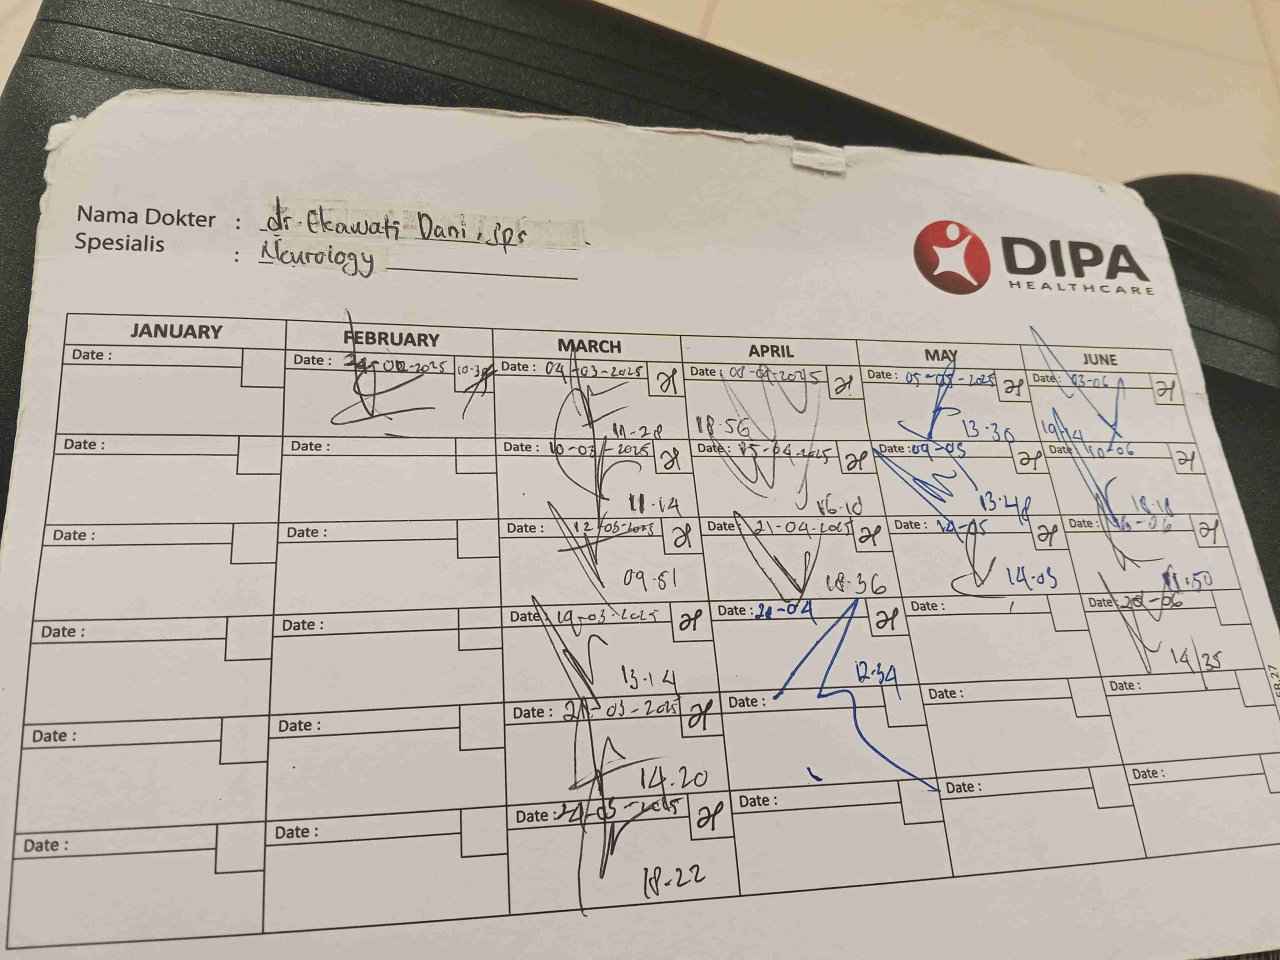 Nama Dokter : dr. Ekawati Dani, Sps
Spesialis : Neurology
DIPA
HEALTHCARE
JANUARY FEBRUARY MARCH APRIL MAY JUNE
Date : Date : -02-2025 Date : 04-03-2025 Date : 08-04-2025 Date : 05-05-2025 Date : 03-06
11-28 18-56 13-30 19-14
Date : Date : Date : 10-03-2025 Date : 15-04-2025 Date : 09-05 Date : 10-06
11-14 16-10 13-48 18-18
Date : Date : Date : 12-03-2025 Date : 21-04-2025 Date : 14-05 Date : 16-06
09-51 18-36 14-03 50
Date : Date : Date : 19-03-2025 Date : 28-04 Date : Date : 20-06
13-14 12-34 14/35
Date : Date : Date : 21-03-2025 Date : Date : Date :
14.20
Date : Date : Date : 24-03-2025 Date : Date : Date :
18-22